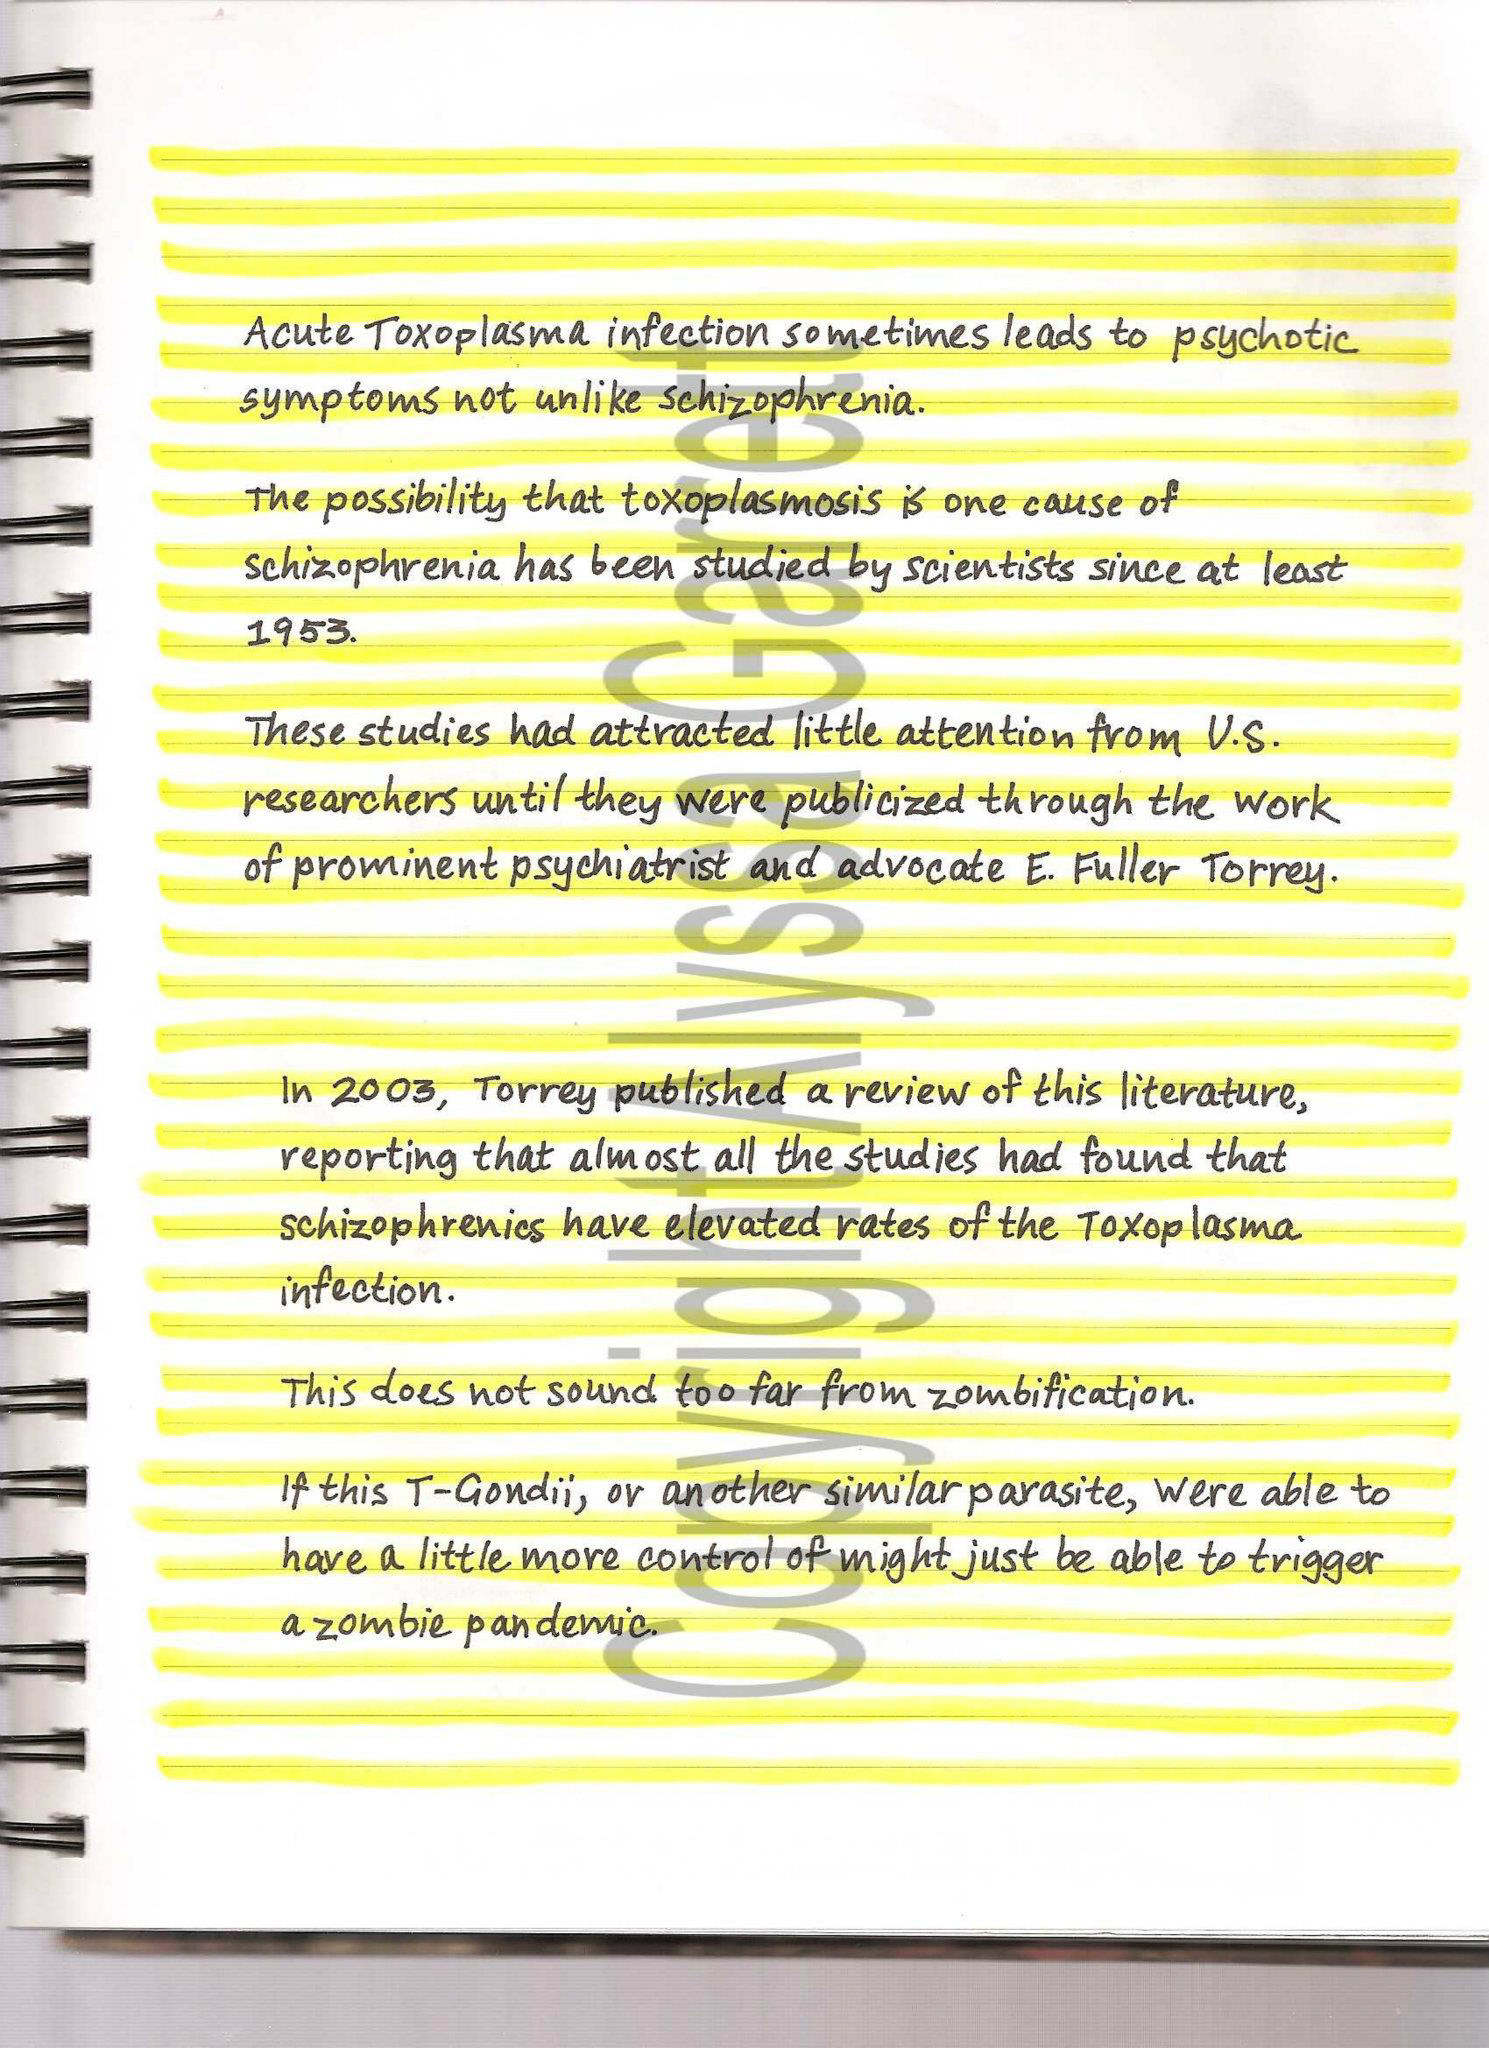 Acute Toxoplasma infection sometimes leads to psychotic
symptoms not unlike schizophrenia.
The possibility that toxoplasmosis is one cause of
schizophrenia has been studied by scientists since at least
1953.
These studies had attracted little attention from U.S.
researchers until they were publicized through the work
of prominent psychiatrist and advocate E. Fuller Torrey.
In 2003, Torrey published a review of this literature,
reporting that almost all the studies had found that
schizophrenics have elevated rates of the Toxoplasma
infection.
This does not sound too far from zombification.
If this T-Gondii, or another similar parasite, were able to
have a little more control of might just be able to trigger
a zombie pandemic.
Copyright Alyssa Garett